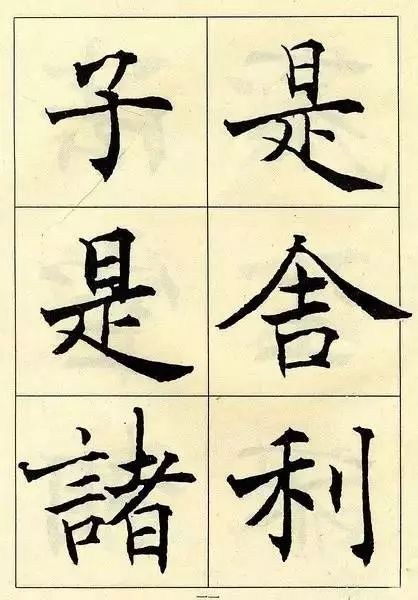 是舍利
子是諸